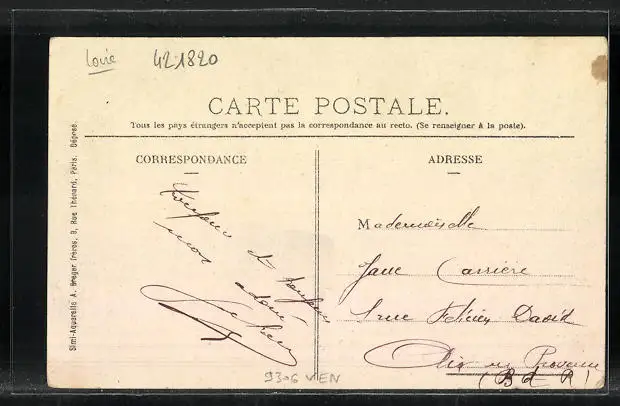 Loire 42-1820
CARTE POSTALE.
Tous les pays étrangers n'acceptent pas la correspondance au recto. (Se renseigner à la poste).
CORRESPONDANCE
ADRESSE
Simi-Aquarelle A. Breger frères, 9, Rue Thénard, Paris. Déposé.
Toujours et toujours
mon adoré
Mademoiselle
Jane Carrière
rue Félicien David
Aix en Provence
(B d R)
9306 VEN